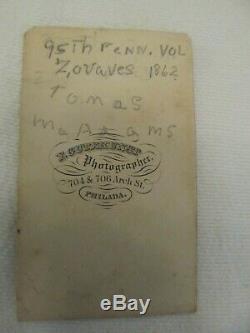 95th PENN. VOL
Zovaves 1862
Tomas
McAdams
F. GUTEKUNST
Photographer,
704 & 706 Arch St.
PHILADA.